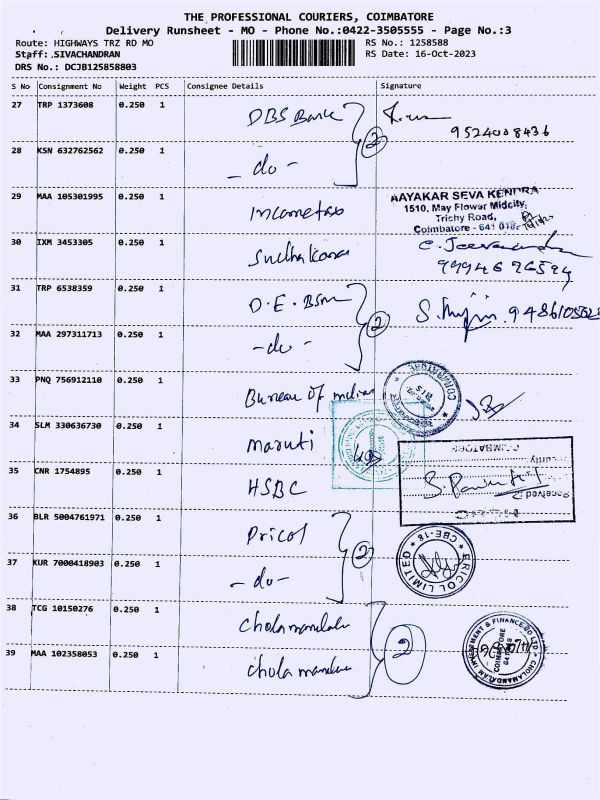 THE PROFESSIONAL COURIERS, COIMBATORE
Delivery Runsheet - MO - Phone No.:0422-3505555 - Page No.:3
Route: HIGHWAYS TRZ RD MO RS No.: 1258588
Staff: SIVACHANDRAN RS Date: 16-Oct-2023
DRS No.: DCJB125858803
S No Consignment No Weight PCS Consignee Details Signature
27 TRP 1373608 0.250 1 DBS Bank
2 9524008436
28 KSN 632762562 0.250 1 - do -
29 MAA 105301995 0.250 1 Incometax
AAYAKAR SEVA KENDRA
1510, May Flower Midcity,
Trichy Road,
Coimbatore - 641 018.
30 IXM 3453305 0.250 1
C. Jeevananda
9994626594
31 TRP 6538359 0.250 1 D.E. 
2
32 MAA 297311713 0.250 1 - do -
33 PNQ 756912110 0.250 1 Bureau of indian
COIMBATORE
BIS
34 SLM 330636730 0.250 1 maruti
COIMBATORE
Security
Received
35 CNR 1754895 0.250 1 HSBC
36 BLR 5004761971 0.250 1 Pricol
2
PRICOL LIMITED
CBE-18
37 KUR 7000418903 0.250 1 - do -
38 TCG 10150276 0.250 1 cholamandalam
2
CHOLAMANDALAM INVESTMENT & FINANCE CO LTD
COIMBATORE
641 018
39 MAA 102358053 0.250 1